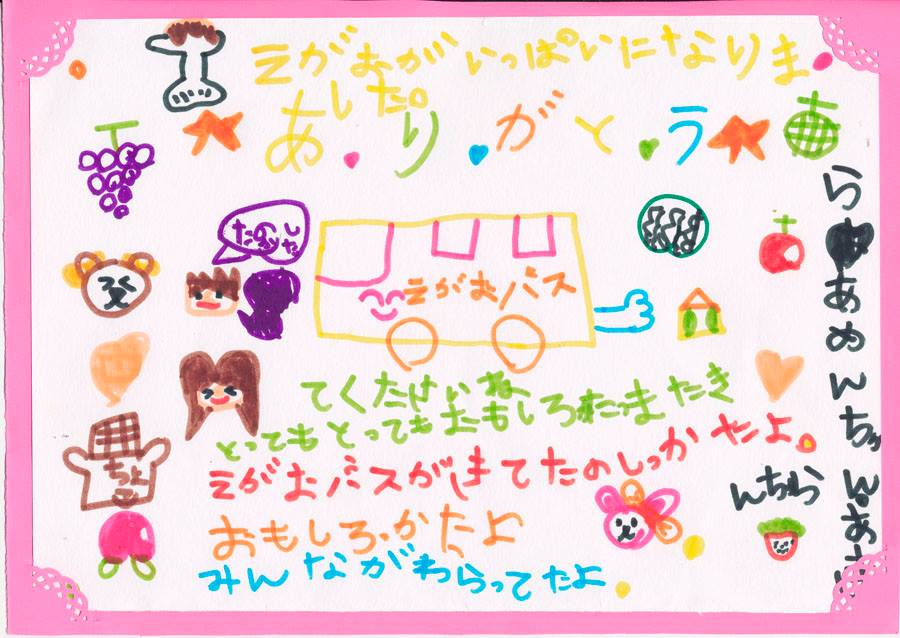 えがおがいっぱいになりま
した。
あ・り・が・と・う
たのしかった
えがおバス
てくださいね
また き
とってもとってもおもしろかった
えがおバスがきてたのしかったよ。
おもしろかたよ
みんながわらってたよ
ちょ
らあめんちゃん
んちら